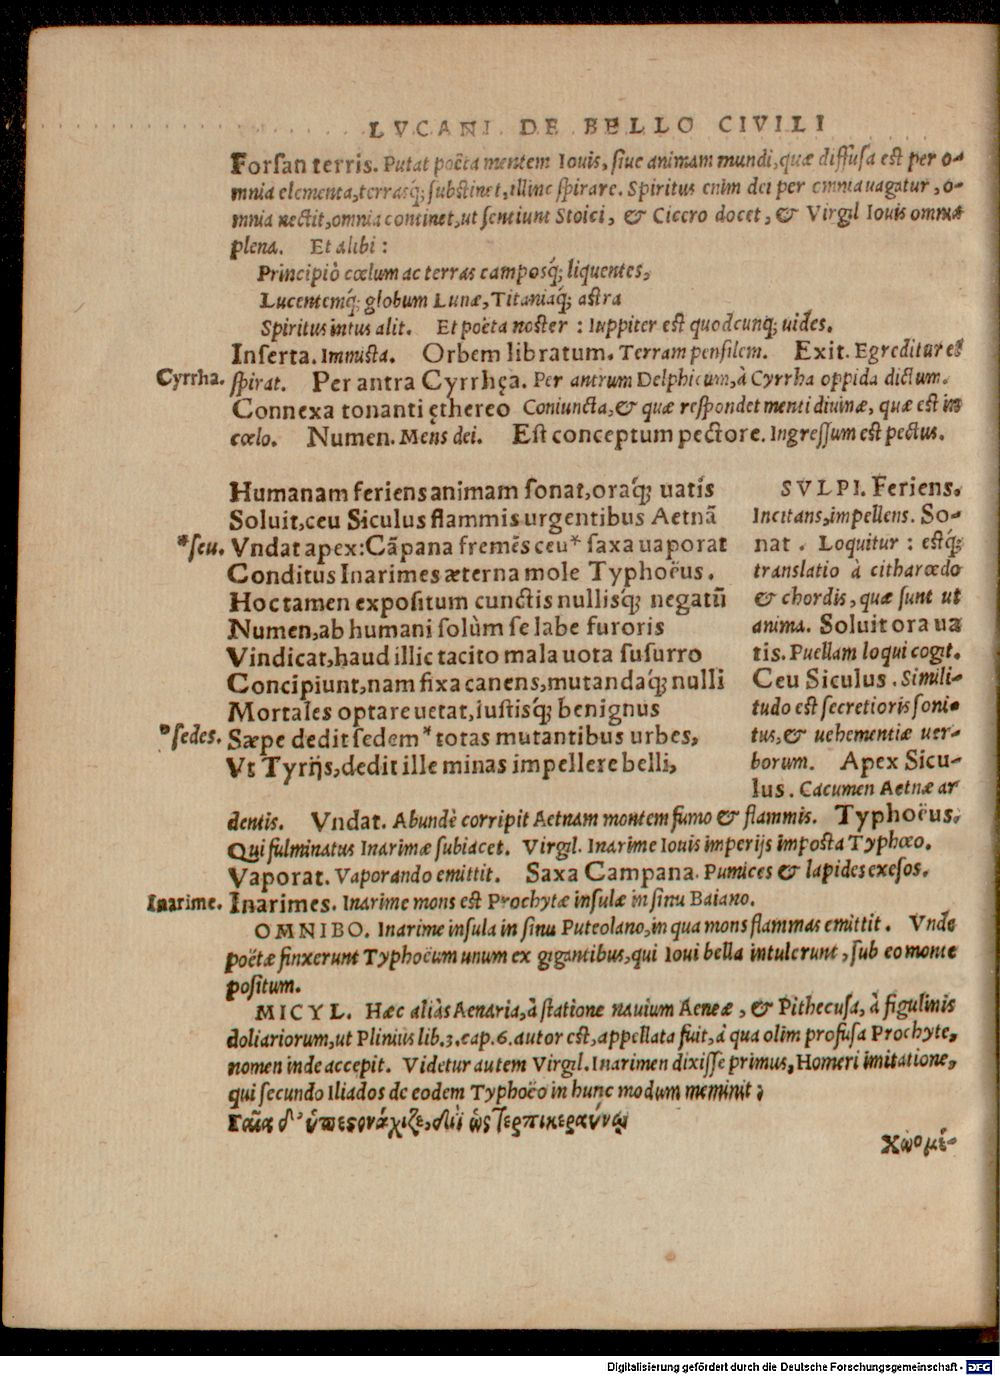 LVCANI DE BELLO CIVILI
Forsan terris. Putat poëta mentem Iouis, siue animam mundi, quæ diffusa est per o-
mnia elementa, terrasq; substinet, illinc spirare. Spiritus enim dei per omnia uagatur, o-
mnia nectit, omnia continet, ut sentiunt Stoici, & Cicero docet, & Virgil Iouis omnia
plena. Et alibi:
Principiò cœlum ac terras camposq; liquentes,
Lucentemq; globum Lunæ, Titaniaq; astra
Spiritus intus alit. Et poëta noster: Iuppiter est quodcunq; uides.
Inserta. Immista. Orbem libratum. Terram pensilem. Exit. Egreditur et
Cyrrha. spirat. Per antra Cyrrhęa. Per antrum Delphicum, à Cyrrha oppida dictum.
Connexa tonanti ęthereo Coniuncta, & quæ respondet menti diuinæ, quæ est in
cœlo. Numen. Mens dei. Est conceptum pectore. Ingressum est pectus.
Humanam feriens animam sonat, oraq; uatis
Soluit, ceu Siculus flammis urgentibus Aetnã
*seu. Vndat apex: Cãpana fremẽs ceu* saxa uaporat
Conditus Inarimes æterna mole Typhoëus.
Hoc tamen expositum cunctis nullisq; negatũ
Numen, ab humani solùm se labe furoris
Vindicat, haud illic tacito mala uota susurro
Concipiunt, nam fixa canens, mutandaq; nulli
Mortales optare uetat, iustisq; benignus
*sedes. Sæpe dedit sedem* totas mutantibus urbes,
Vt Tyrijs, dedit ille minas impellere belli,
SVLPI. Feriens.
Incitans, impellens. So-
nat. Loquitur: estq;
translatio à citharœdo
& chordis, quæ sunt ut
anima. Soluit ora ua
tis. Puellam loqui cogit.
Ceu Siculus. Simili-
tudo est secretioris soni-
tus, & uehementiæ uer-
borum. Apex Sicu-
lus. Cacumen Aetnæ ar
dentis. Vndat. Abundè corripit Aetnam montem fumo & flammis. Typhoëus.
Qui fulminatus Inarimæ subiacet. Virgil. Inarime Iouis imperijs imposta Typhœo.
Vaporat. Vaporando emittit. Saxa Campana. Pumices & lapides exesos.
Inarime. Inarimes. Inarime mons est Prochytæ insulæ in sinu Baiano.
OMNIBO. Inarime insula in sinu Puteolano, in qua mons flammas emittit. Vnde
poëtæ finxerunt Typhoëum unum ex gigantibus, qui Ioui bella intulerunt, sub eo monte
positum.
MICYL. Hæc aliàs Aenaria, à statione nauium Aeneæ, & Pithecusa, à figulinis
doliariorum, ut Plinius lib. 3. cap. 6. autor est, appellata fuit, à qua olim profusa Prochyte,
nomen inde accepit. Videtur autem Virgil. Inarimen dixisse primus, Homeri imitatione,
qui secundo Iliados de eodem Typhoëo in hunc modum meminit:
Γαῖα δ' ὑπεστονάχιζε, διῒ ὡς τερπικεραύνῳ
Χωομέ-
Digitalisierung gefördert durch die Deutsche Forschungsgemeinschaft - DFG